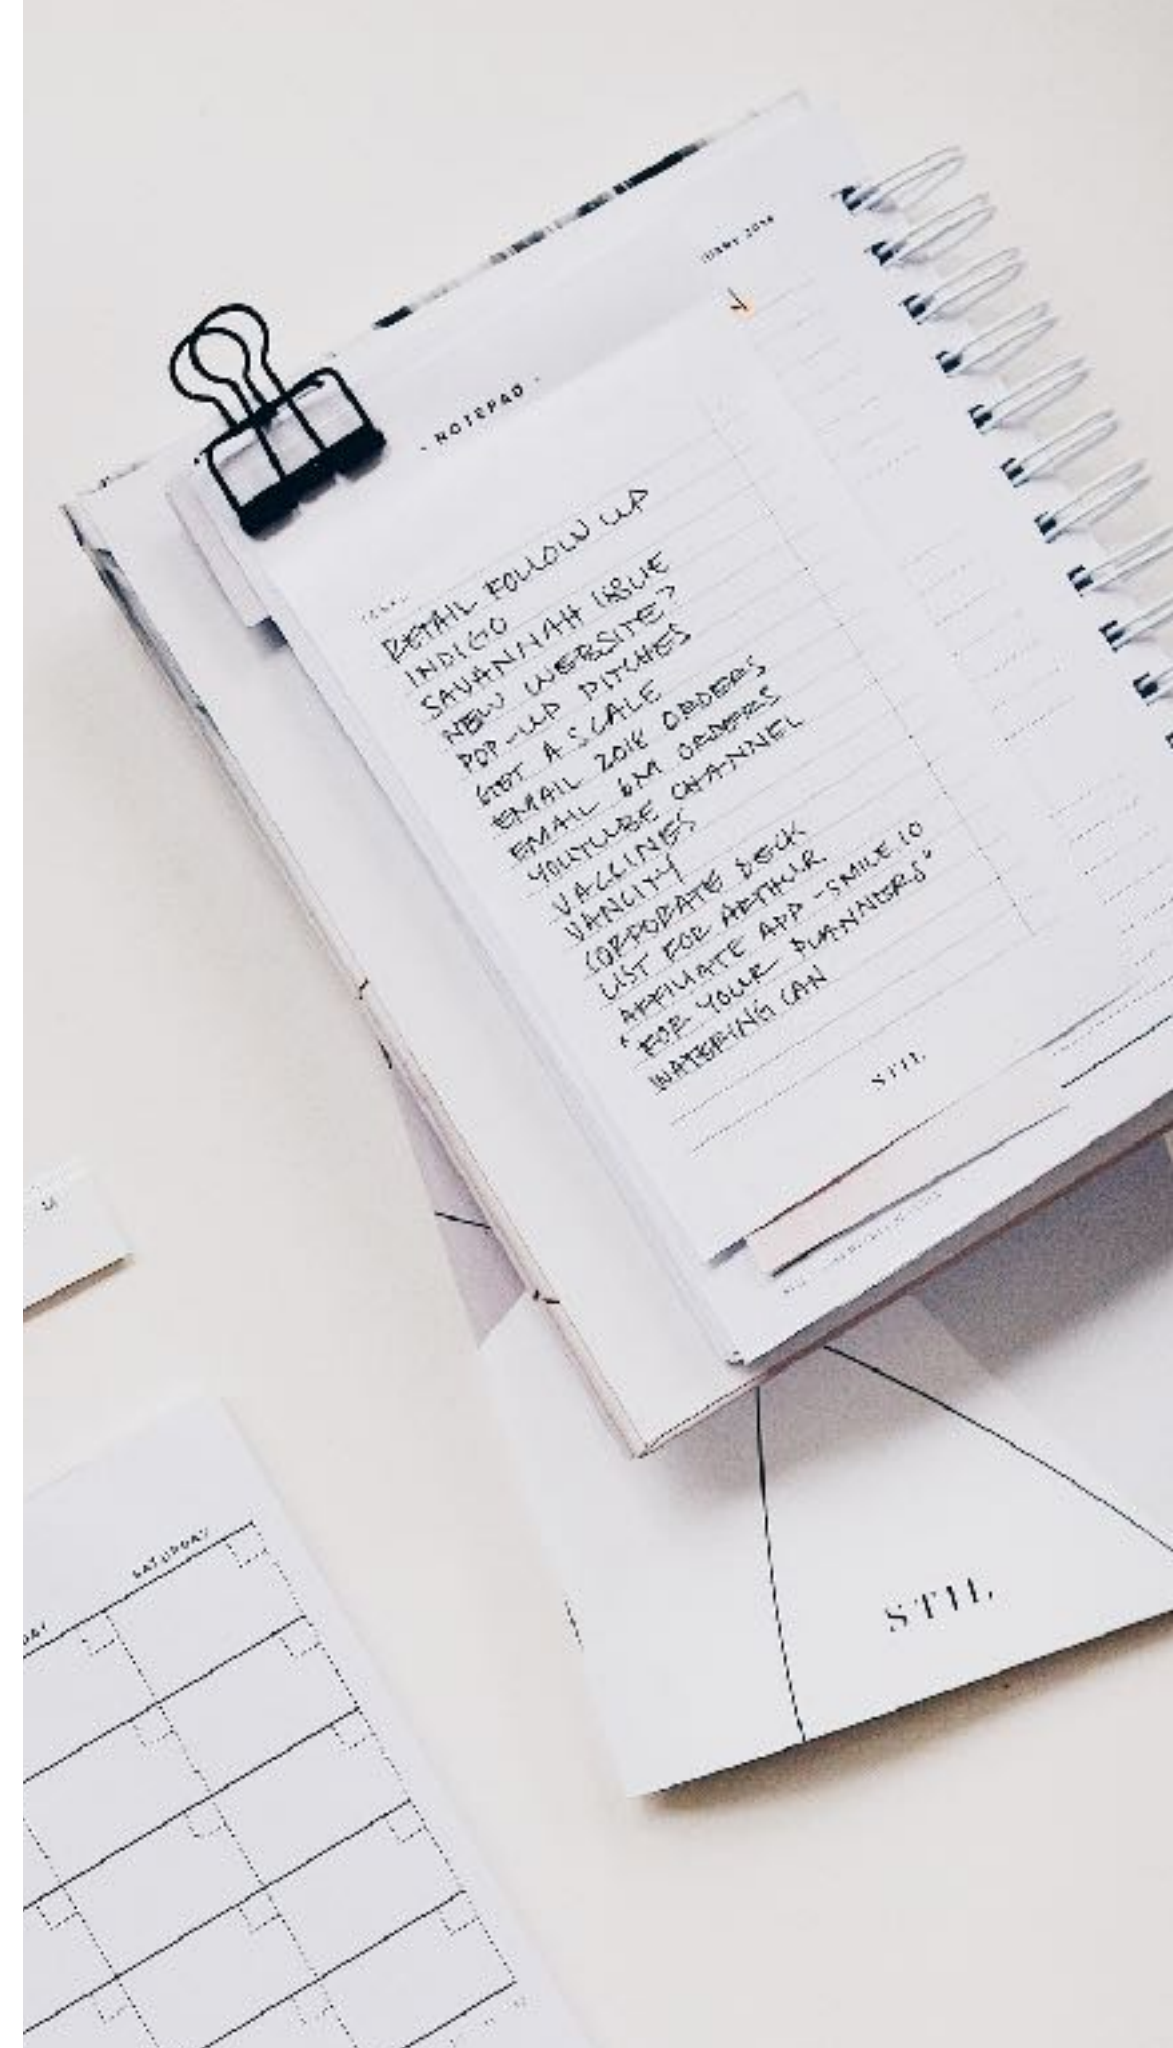 - NOTEPAD -
RETAIL FOLLOW UP
INDIGO
SAVANNAH ISSUE
NEW WEBSITE?
POP-UP PITCHES
GET A SCALE
EMAIL 2018 ORDERS
EMAIL 6M ORDERS
YOUTUBE CHANNEL
VACCINES
VANCITY
CORPORATE DECK
LIST FOR ARTHUR
AFFILIATE APP - SMILE IO
"FOR YOUR PLANNERS"
WATERING CAN
STIL
STIL
SATURDAY